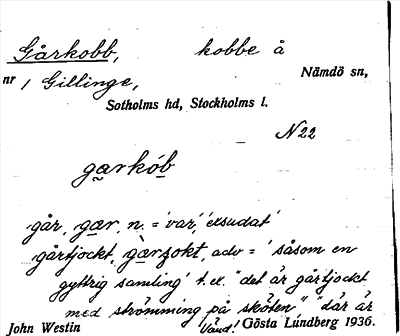 Gårkobb, kobbe å
nr 1 Gillinge, Nämdö sn,
Sotholms hd, Stockholms l.
N22
garkób
går, gær, n. = 'var', 'exsudat'
gårtjockt, gàrʒokt, adv = 'såsom en
gyttrig samling' t.ex. "det är gårtjockt
med strömming på sköten" "där är
John Westin Gösta Lundberg 1936.